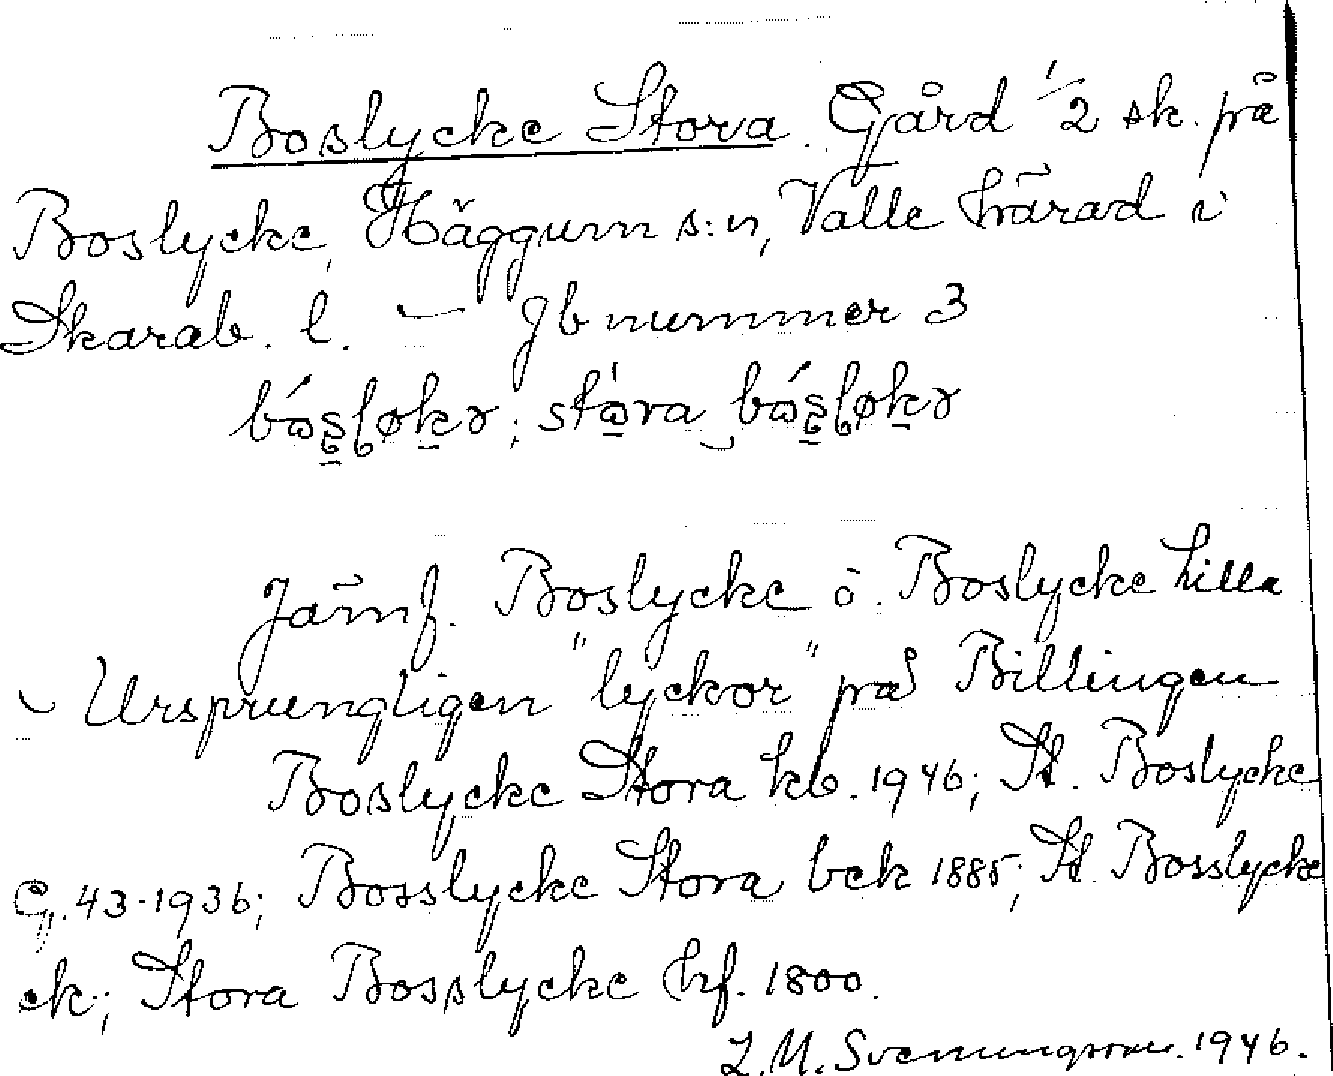 Boslycke Stora. Gård 1/2 sk. på
Boslycke, Häggum s:n, Valle härad i
Skarab. l. — Jb nummer 3
stora
Jämf. Boslycke o. Boslycke Lilla
- Ursprungligen "lyckor" på Billingen
Boslycke Stora kb. 1946; St. Boslycke
G. 43-1936; Bosslycke Stora bek 1885; St. Bosslycke
ek; Stora Bosslycke hf. 1800.
L. M. Svenungsson. 1946.